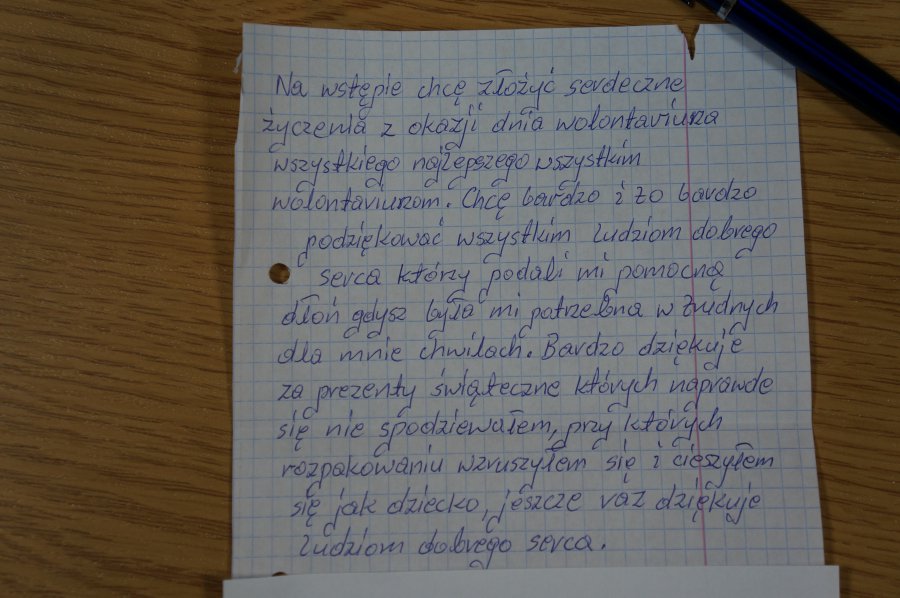 Na wstępie chcę złożyć serdeczne
życzenia z okazji dnia wolontariusza
wszystkiego najlepszego wszystkim
wolontariuszom. Chcę bardzo i to bardzo
podziękować wszystkim ludziom dobrego
serca którzy podali mi pomocną
dłoń gdysz była mi potrzebna w trudnych
dla mnie chwilach. Bardzo dziękuje
za prezenty świąteczne których naprawde
się nie spodziewałem, przy których
rozpakowaniu wzruszyłem się i cieszyłem
się jak dziecko, jeszcze raz dziękuje
ludziom dobrego serca.